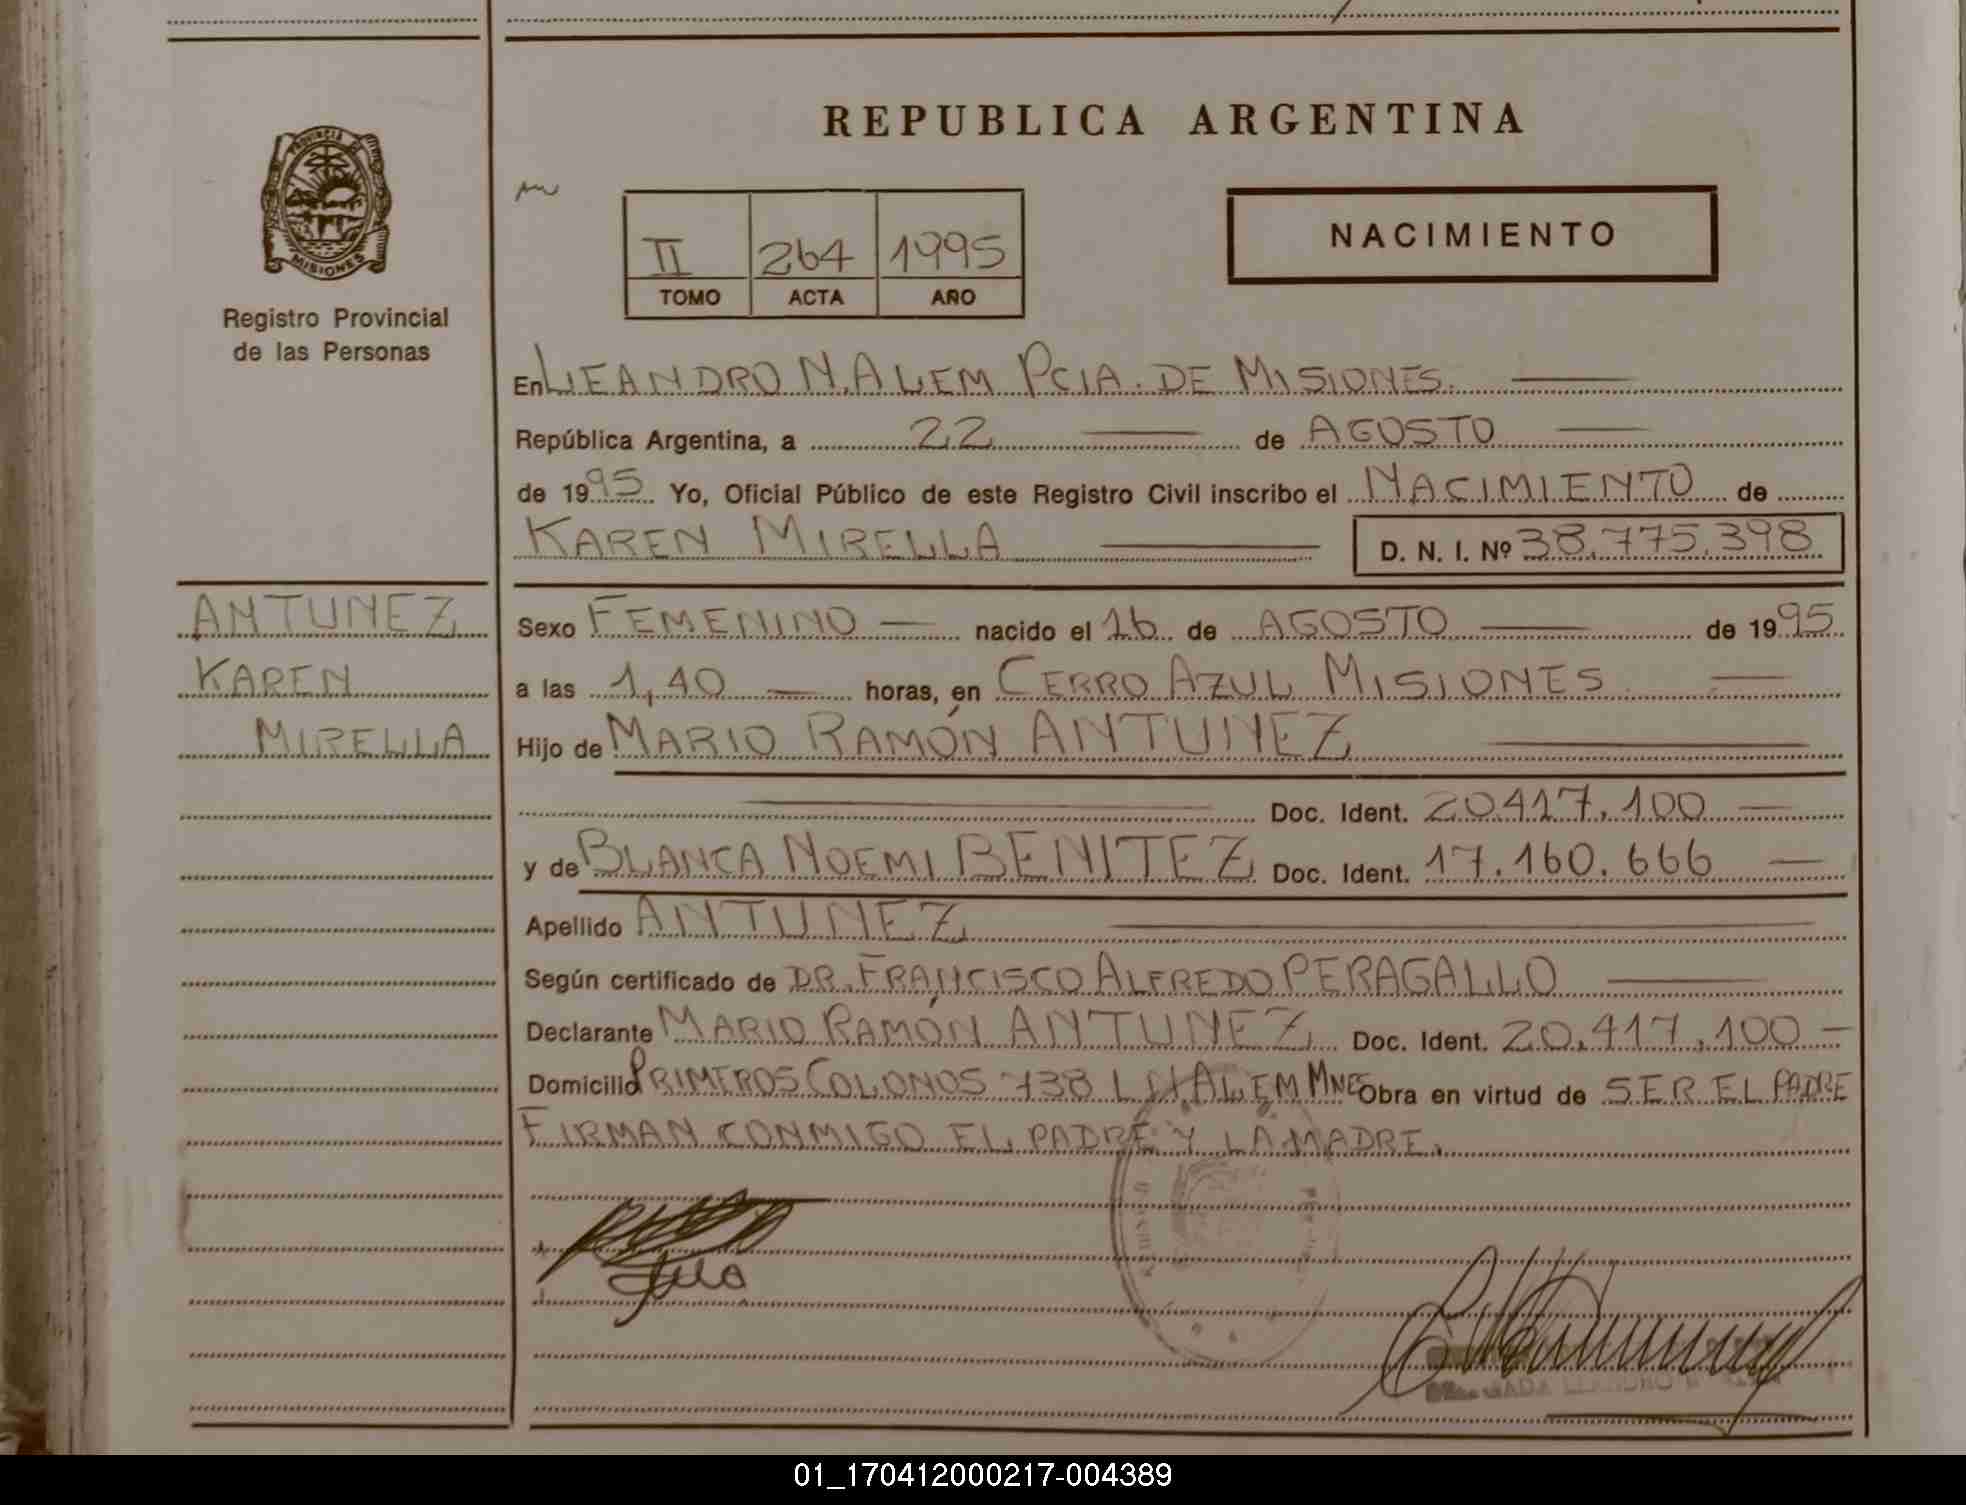 PROVINCIA DE
MISIONES
Registro Provincial
de las Personas
REPUBLICA ARGENTINA
II 264 1995
TOMO ACTA AÑO
NACIMIENTO
En LEANDRO N. ALEM PCIA. DE MISIONES.
República Argentina, a 22 de AGOSTO
de 1995 Yo, Oficial Público de este Registro Civil inscribo el NACIMIENTO de
KAREN MIRELLA D. N. I. Nº 38.775.398
ANTUNEZ
KAREN
MIRELLA
Sexo FEMENINO nacido el 16 de AGOSTO de 1995
a las 1,40 horas, en CERRO AZUL MISIONES
Hijo de MARIO RAMÓN ANTUNEZ
Doc. Ident. 20.417.100
y de BLANCA NOEMI BENITEZ Doc. Ident. 17.160.666
Apellido ANTUNEZ
Según certificado de DR. FRANCISCO ALFREDO PERAGALLO
Declarante MARIO RAMÓN ANTUNEZ Doc. Ident. 20.417.100
Domicilio PRIMEROS COLONOS 738 L.N.ALEM MNES Obra en virtud de SER EL PADRE
FIRMAN CONMIGO EL PADRE Y LA MADRE.
01_170412000217-004389